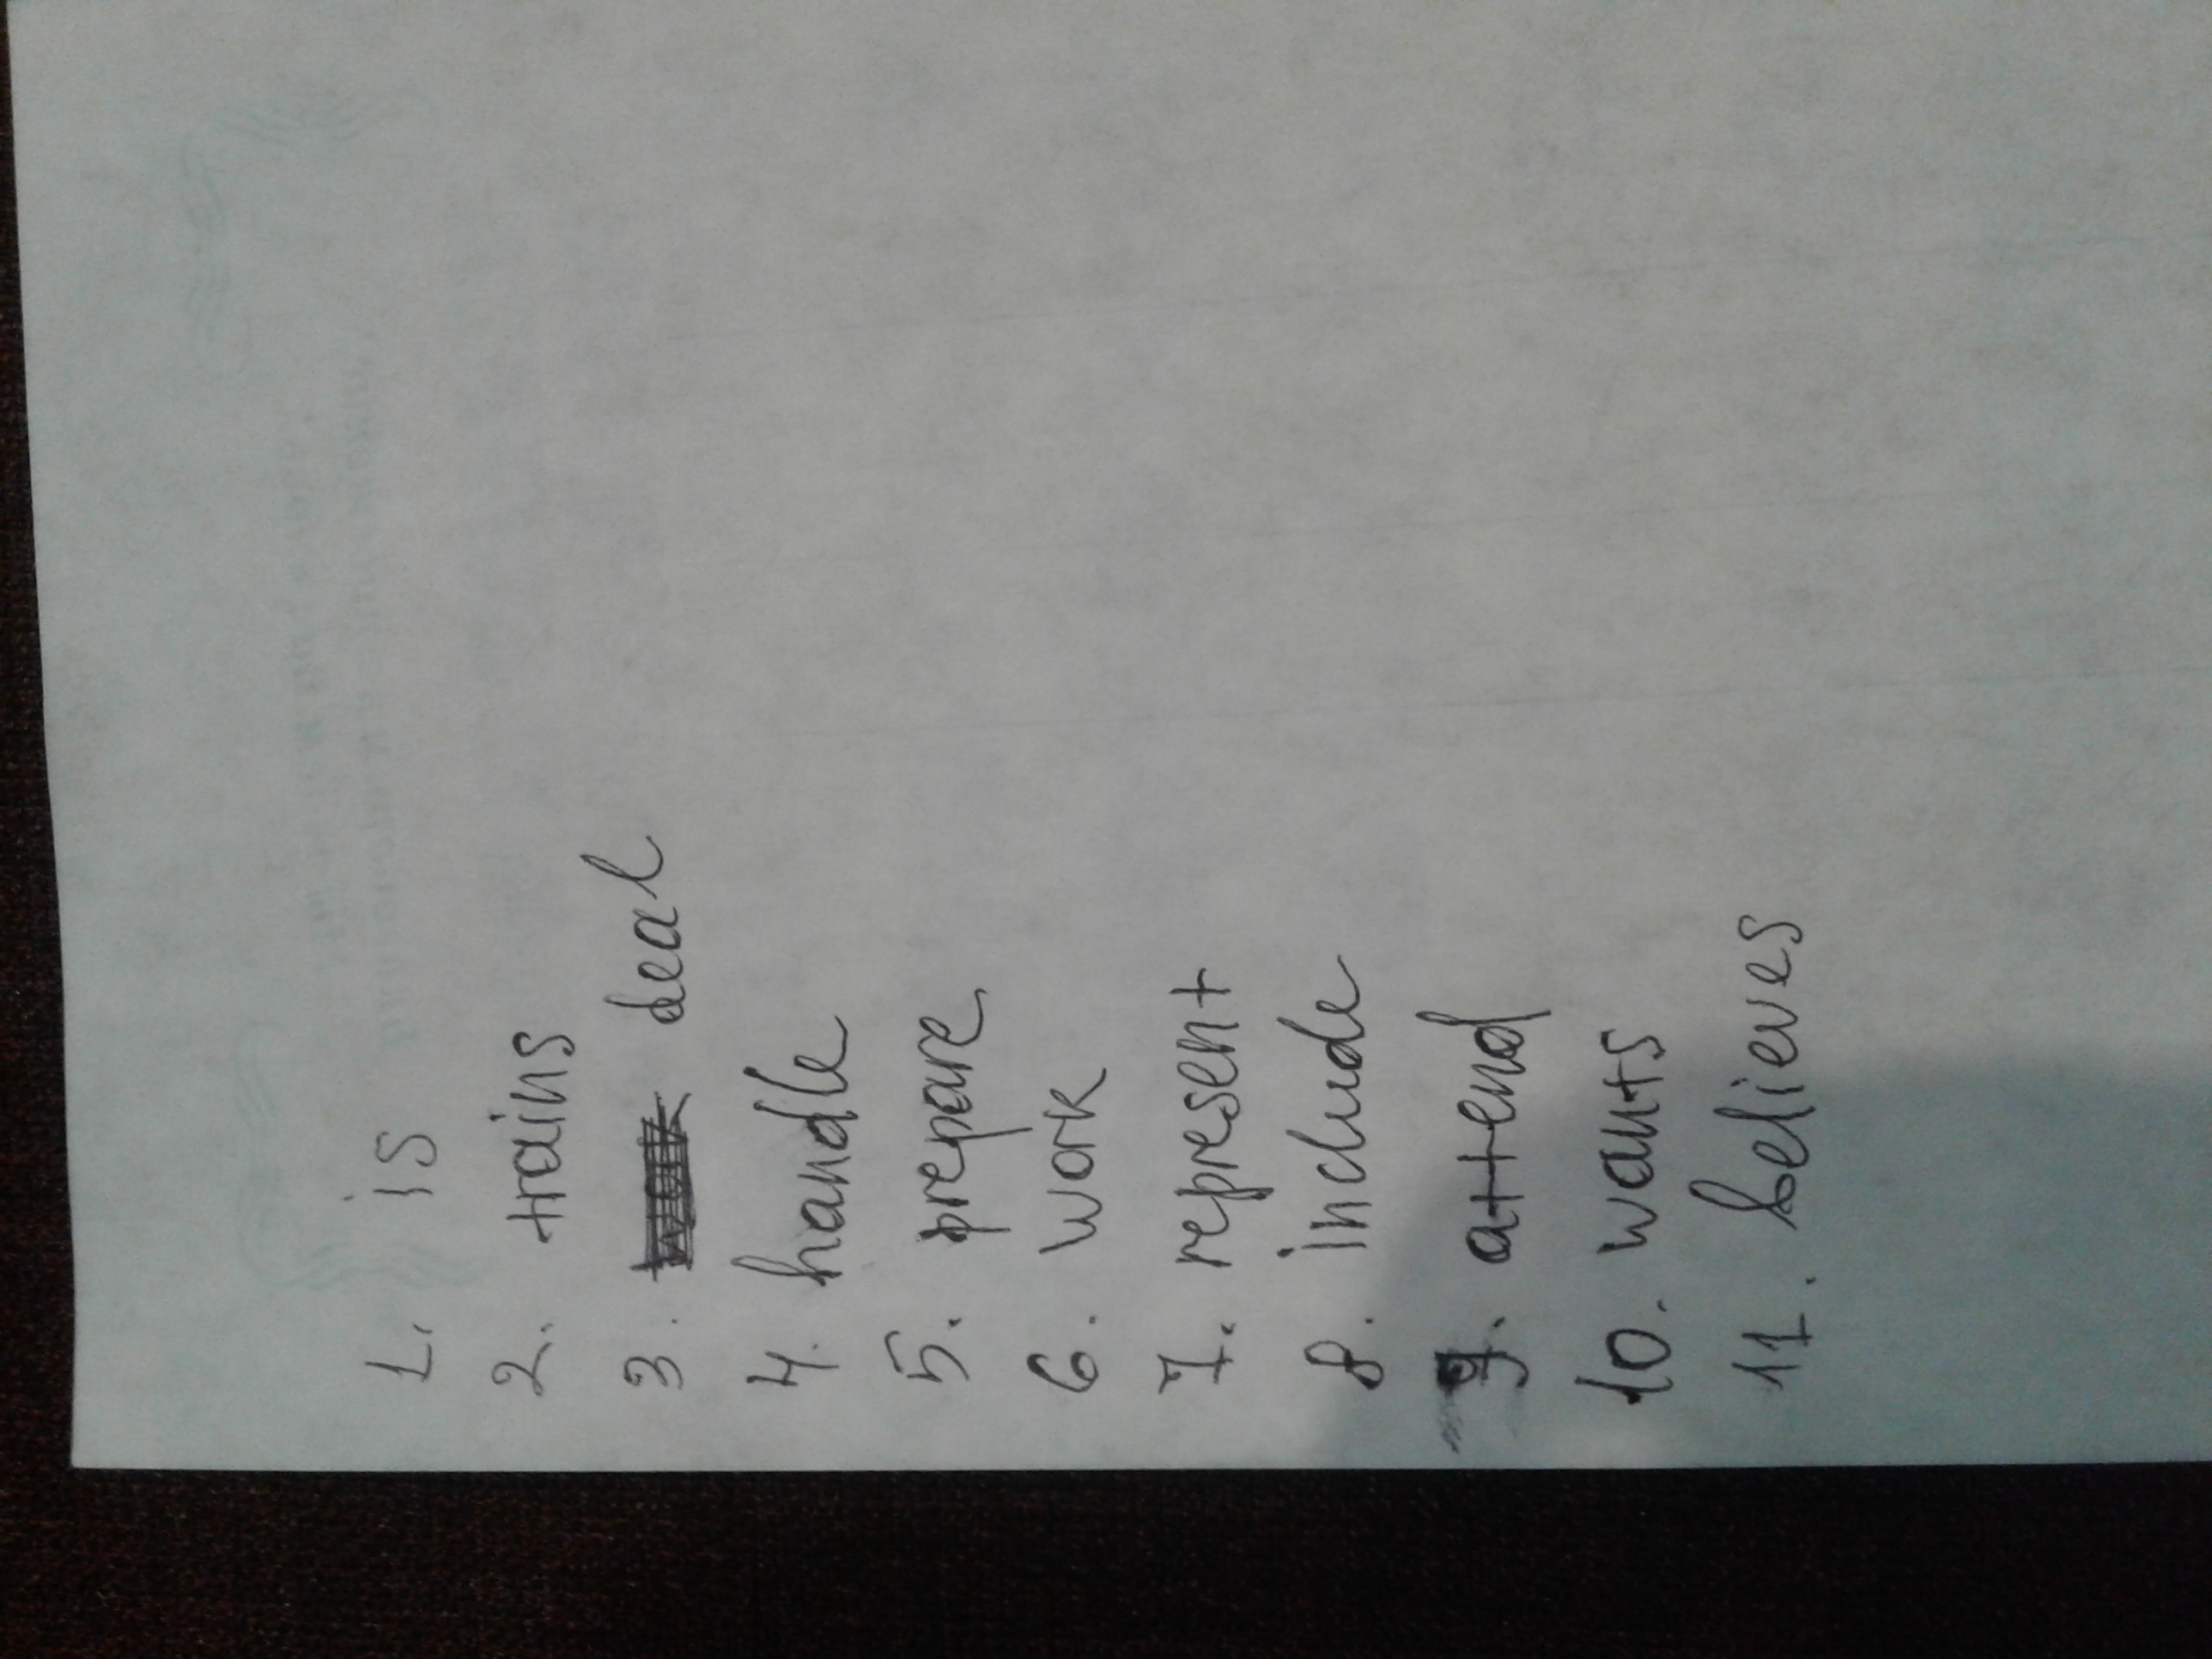 1. is
2. trains
3. deal
4. handle
5. prepare
6. work
7. represent
8. include
9. attend
10. wants
11. believes